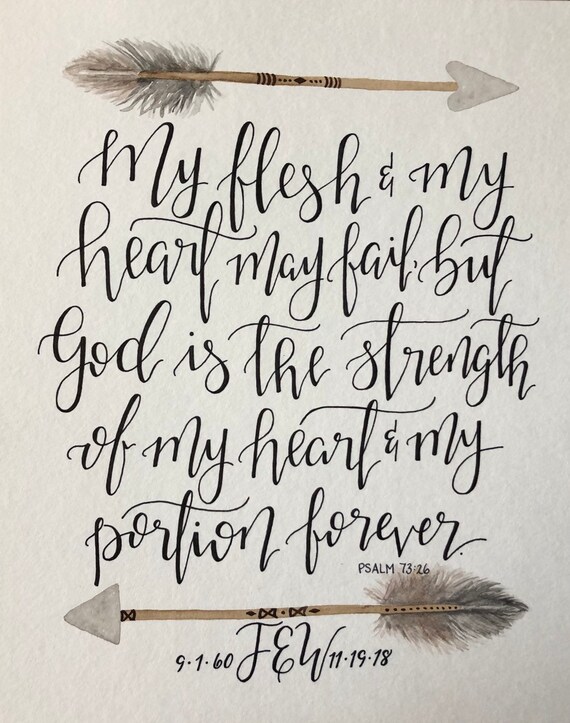 My flesh & my
heart may fail, but
God is the strength
of my heart & my
portion forever.
PSALM 73:26
9·1·60 JEW 11·19·18